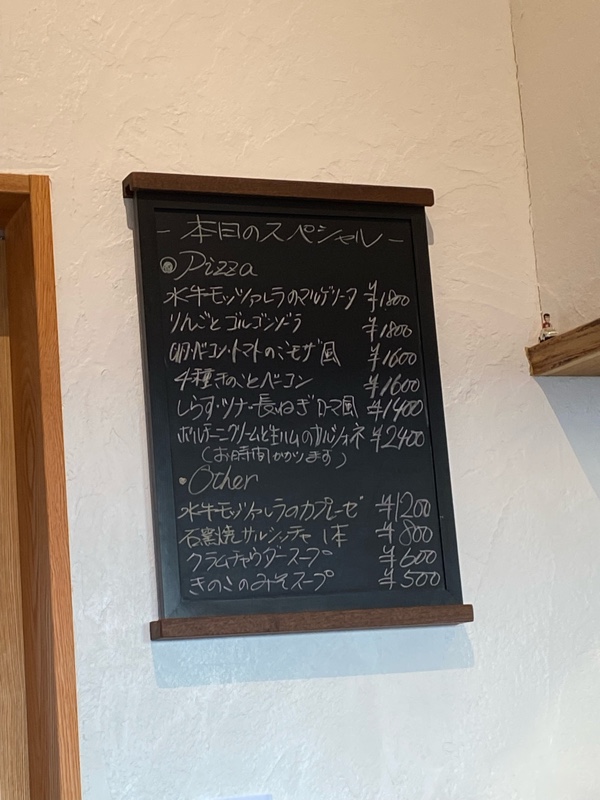 - 本日のスペシャル -
Pizza
水牛モッツァレラのマルゲリータ ¥1800
りんごとゴルゴンゾーラ ¥1800
卵・ベーコン・トマトのミモザ風 ¥1600
4種きのことベーコン ¥1600
しらす・ツナ・長ねぎ ローマ風 ¥1400
ポルチーニクリームと生ハムのカルツォーネ ¥2400
(お時間かかります)
・Other
水牛モッツァレラのカプレーゼ ¥1200
石窯焼サルシッチャ 1本 ¥800
クラムチャウダースープ ¥600
きのこのみそスープ ¥500